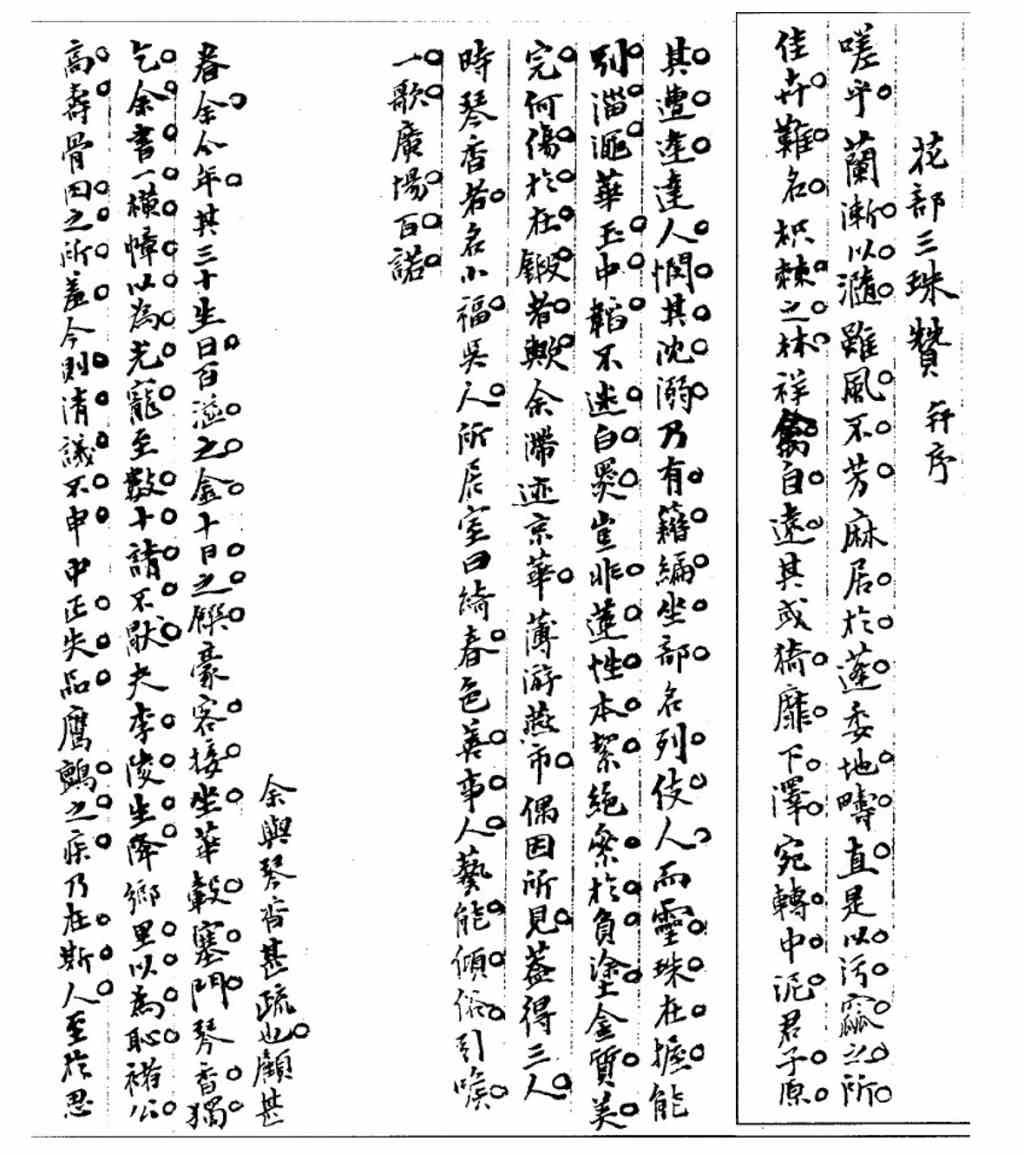 花部三珠贊 并序
嗟乎蘭漸以滫雖風不芳麻居於蓬委地疇直是以污窳之所
佳卉難名枳棘之林祥禽自遠其或猗靡下澤宛轉中泥君子原
其遭達達人憫其沈溺乃有籍編坐部名列伎人而靈珠在握能
別淄澠華玉中韜不迷白黑豈非蓮性本絜絕染於負塗金質美
完何傷於在鍛者歟余滯迹京華薄游燕市偶因所見蓋得三人
時琴香者名小福吳人所居室曰綺春色善事人藝能傾俗引喚
一歌廣場百諾
余與琴香甚疏也顧甚
眷余今年其三十生日百溢之金十日之饌豪客接坐華轂塞門琴香獨
乞余書一橫幛以為光寵至數十請不猒夫李陵生降鄉里以為恥褚公
高壽骨肉之所羞今則清議不申中正失品鷹鸇之疾乃在斯人至於思